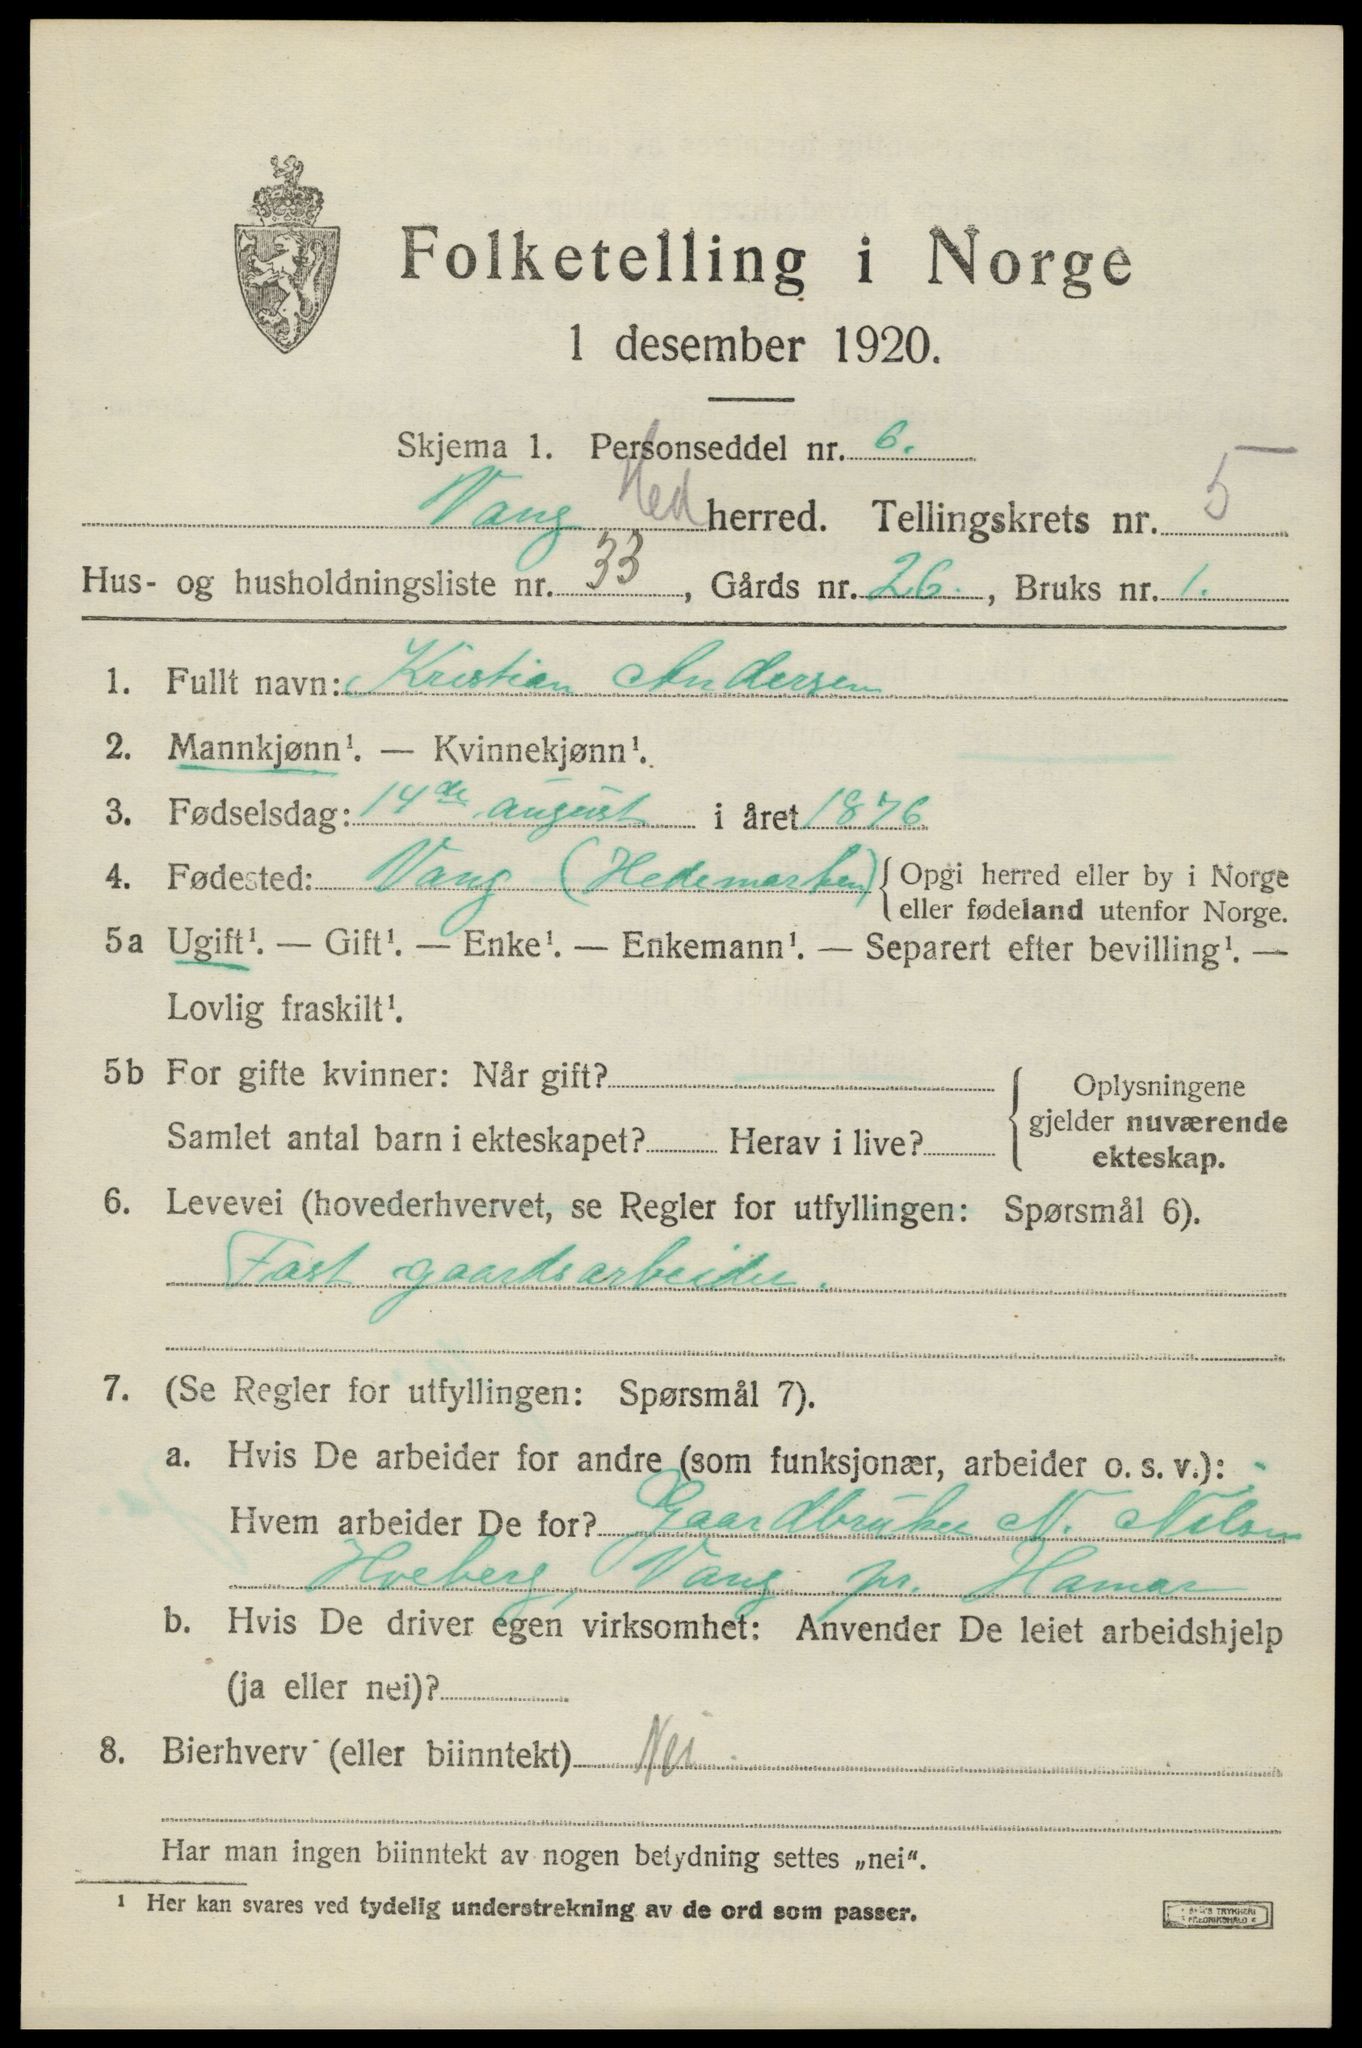 Folketelling i Norge
1 desember 1920.
Skjema 1. Personseddel nr. 6.
Vang Hed herred. Tellingskrets nr. 5
Hus- og husholdningsliste nr. 33, Gårds nr. 26., Bruks nr. 1.
1. Fullt navn: Kristian Andersen
2. Mannkjønn¹. — Kvinnekjønn¹.
3. Fødselsdag: 14de august i året 1876
4. Fødested: Vang (Hedemarken) { Opgi herred eller by i Norge
eller fødeland utenfor Norge.
5a Ugift¹. — Gift¹. — Enke¹. — Enkemann¹. — Separert efter bevilling¹. —
Lovlig fraskilt¹.
5b For gifte kvinner: Når gift?
Samlet antal barn i ekteskapet? Herav i live?
{ Oplysningene
gjelder nuværende
ekteskap.
6. Levevei (hovederhvervet, se Regler for utfyllingen: Spørsmål 6).
Fast gaardsarbeider.
7. (Se Regler for utfyllingen: Spørsmål 7).
a. Hvis De arbeider for andre (som funksjonær, arbeider o. s. v.):
Hvem arbeider De for? Gaardbruker N. Nilsen
Hoeberg, Vang pr. Hamar
b. Hvis De driver egen virksomhet: Anvender De leiet arbeidshjelp
(ja eller nei)?
8. Bierhverv (eller biinntekt) Nei
Har man ingen biinntekt av nogen betydning settes „nei“.
¹ Her kan svares ved tydelig understrekning av de ord som passer.